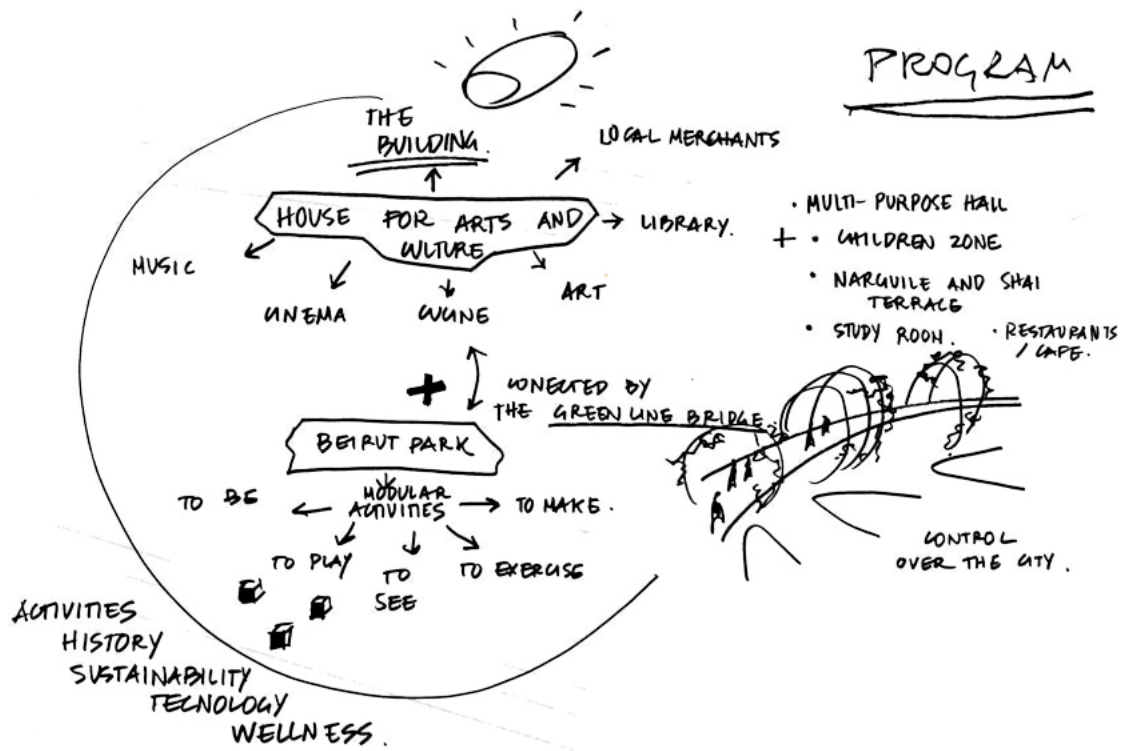 PROGRAM
THE
BUILDING.
LOCAL MERCHANTS
HOUSE FOR ARTS AND
CULTURE
LIBRARY.
MUSIC
CINEMA
ART
• MULTI-PURPOSE HALL
+ • CHILDREN ZONE
• NARGUILE AND SHAI
TERRACE
• STUDY ROOM.
• RESTAURANTS
/ CAFE.
+
CONECTED BY
THE GREEN LINE BRIDGE
BEIRUT PARK
MODULAR
ACTIVITIES
TO BE
TO MAKE.
TO PLAY
TO
SEE
TO EXERCISE
CONTROL
OVER THE CITY.
ACTIVITIES
HISTORY
SUSTAINABILITY
TECNOLOGY
WELLNESS.